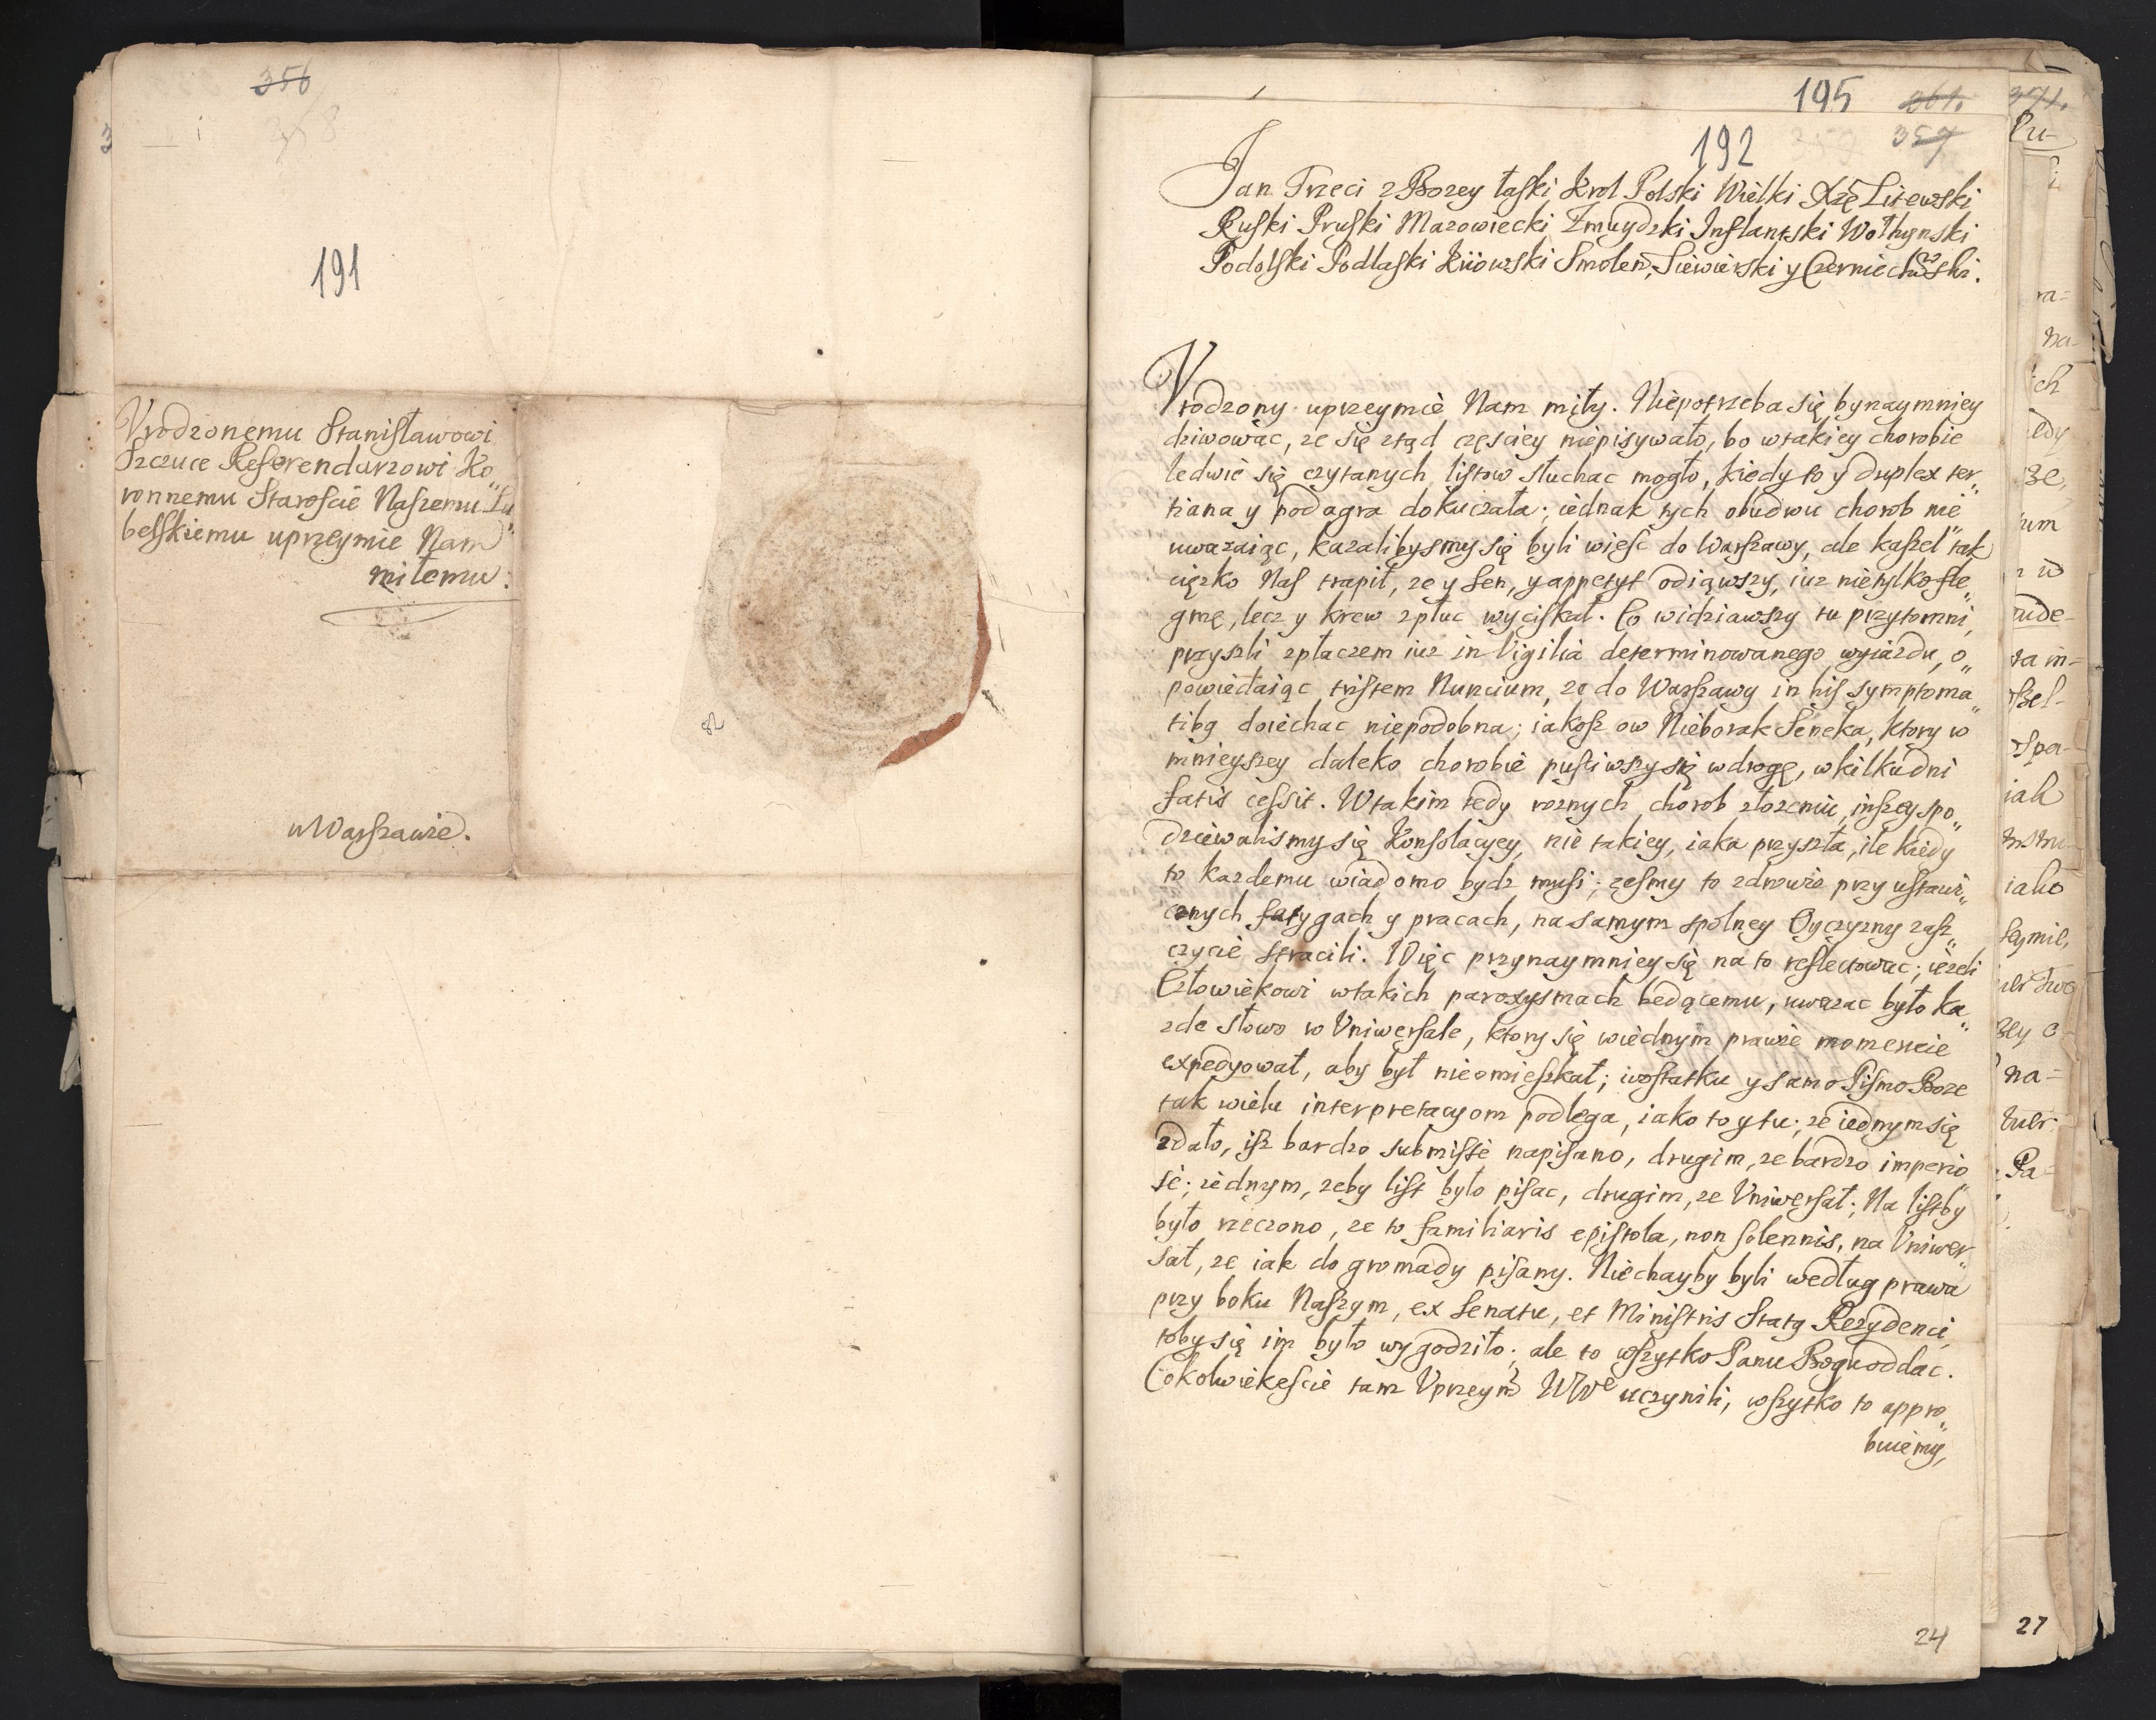 356
358
191
Vrodzonemu Stanisławowi
Szczuce Referendarzowi Ko„
ronnemu Staroscie Naszemu Lu„
belskiemu uprzeymie Nam
miłemu.
w Warszawie.
195 361.
192 359 357
Jan Trzeci z Bozey łaski Krol Polski Wielki Xżę Litewski
Ruski Pruski Mazowiecki Zmuydzki Inflantski Wołhynski
Podolski Podlaski Kiiowski Smolen, Siewierski y Czerniechowski.
Vrodzony uprzeymie Nam miły. Niepotrzeba się bynaymniey
dziwowac, ze się ztąd częsciey niepisywało, bo wtakiey chorobie
ledwie się czytanych listow słuchac mogło, kiedy to y duplex ter„
tiana y podagra dokuczała; iednak tych obudwu chorob nie
uwazaiąc, kazalibysmy się byli wiesć do Warszawy, ale kaszel tak
cięzko Nas trapił, ze y sen, y appetyt odiąwszy, iuz nietylko fle„
gmę, lecz y krew zpłuc wyciskał. Co widziawszy tu przytomni,
przyszli zpłaczem iuz in Vigilia determinowanego wyiazdu, o„
powiedaiąc tristem Nuncium, ze do Warszawy in his symptoma„
tibq doiechac niepodobna; iakosz ow Nieborak Seneka, ktory w
mnieyszey daleko chorobie pusciwszy się wdrogę, wkilku dni
fatis cessit. Wtakim tedy roznych chorob złozeniu, inszey spo„
dziewalismy się Konsolacyey, nie takiey, iaka przyszła, ile kiedy
to kazdemu wiadomo bydz musi; zesmy to zdrowie przy ustawi„
cznych fatygach y pracach, na samym spolney Oyczyzny zasz„
czycie stracili. Więc przynaymniey się na to reflectowac; iezeli
Człowiekowi wtakich paroxysmach będącemu, uwazac było ka„
zde słowo w Vniwersale, ktory się wiednym prawie momencie
expedyował, aby był nieomieszkał; wostatku y samo Pismo Boze
tak wielu interpretacyom podlega, iako to y tu; ze iednym się
zdało, isz bardzo submisse napisano, drugim, ze bardzo imperio„
se; iednym, zeby list było pisac, drugim, ze Vniwersał; Na list by
było rzeczono, ze to familiaris epistola, non solennis, na Vniwer„
sał, ze iak do gromady pisany. Niechayby byli według prawa
przy boku Naszym, ex Senatu, et Ministris Statq Rezydenci,
toby się im było wygodziło; ale to wszystko Panu Bogu oddac.
Cokolwiekescie tam Vprzeym WWe uczynili, wszystko to appro„
buiemy,
24
371.
Pu-
ra=
na-
ich
iedy
ze,
um
n w
ude-
ta in-
szel-
spa-
iak
iako
seymie,
zey o
na=
Pa=
27